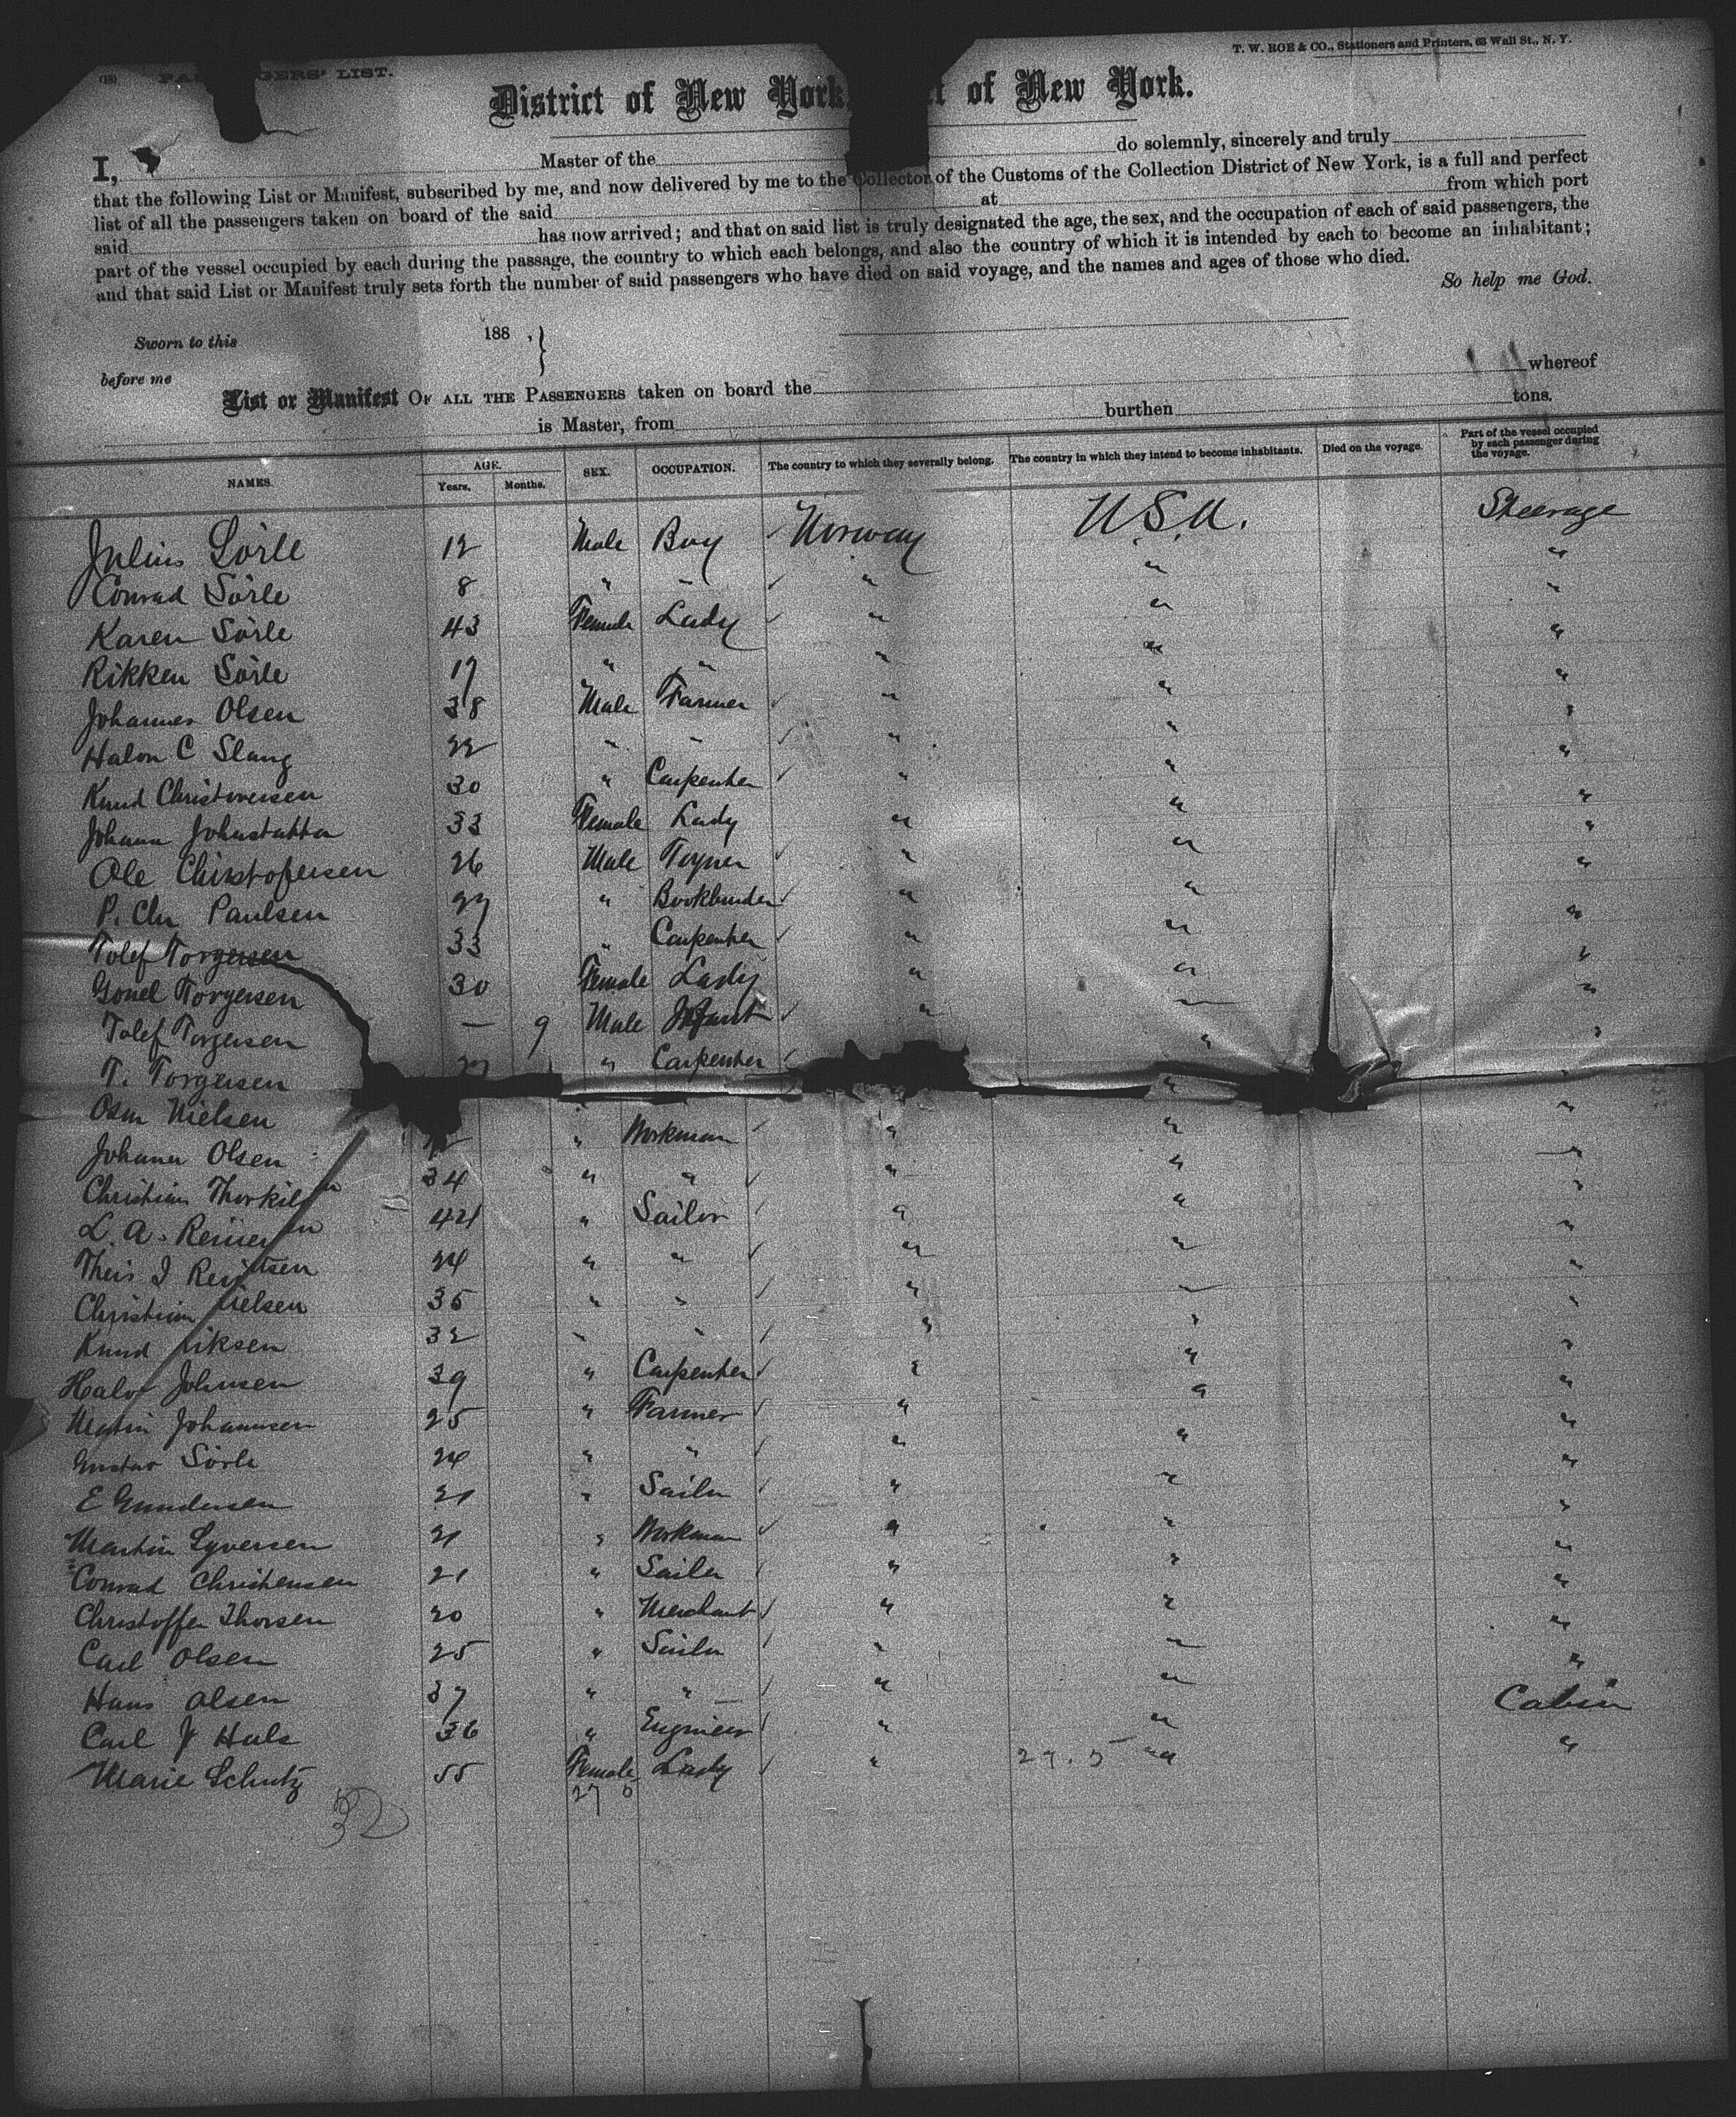 T. W. ROE & CO., Stationers and Printers, 63 Wall St., N. Y.
(18) PAS GERS' LIST.
District of New York, ct of New York.
I, Master of the do solemnly, sincerely and truly
that the following List or Manifest, subscribed by me, and now delivered by me to the Collector of the Customs of the Collection District of New York, is a full and perfect
list of all the passengers taken on board of the said at from which port
said has now arrived; and that on said list is truly designated the age, the sex, and the occupation of each of said passengers, the
part of the vessel occupied by each during the passage, the country to which each belongs, and also the country of which it is intended by each to become an inhabitant;
and that said List or Manifest truly sets forth the number of said passengers who have died on said voyage, and the names and ages of those who died.
So help me God.
Sworn to this 188 , }
before me
List or Manifest OF ALL THE PASSENGERS taken on board the whereof
is Master, from burthen tons.
NAMES. AGE. Years. Months. SEX. OCCUPATION. The country to which they severally belong. The country in which they intend to become inhabitants. Died on the voyage. Part of the vessel occupied by each passenger during the voyage.
Julius Sörle 12 Male Boy Norway U.S.A. Steerage
Conrad Sörle 8 " " " " "
Karen Sörle 43 Female Lady " " "
Rikken Sörle 17 " " " " "
Johannes Olsen 38 Male Farmer " " "
Halon C Slang 22 " " " " "
Knud Christoversen 30 " Carpenter " " "
Johann 33 Female Lady " " "
Ole Christofersen 26 Male " " "
P. Chr Paulsen 27 " Bookbinder " " "
Tolef Torgersen 33 " Carpenter " " "
Gonel Torgersen 30 Female Lady " " "
Tolef Torgersen — 9 Male Infant " " "
T. Torgersen 27 " Carpenter " "
Osm Nielsen " "
Johann Olsen " Workman " " "
Christian Thorkil n 34 " " " " "
L. A. Reiner en 44 " Sailor " " "
Theis J Rei tsen 24 " " " " "
Christian Nielsen 35 " " " " "
Knud riksen 32 " " " " "
Halvor Johnsen 39 " Carpenter " " "
Martin Johannsen 25 " Farmer " " "
Gustav Sörle 24 " " " " "
E Gundersen 21 " Sailor " " "
Martin Syversen 21 " Workman " " "
Conrad Christensen 21 " Sailor " " "
Christoffer Thorsen 20 " Merchant " " "
Carl Olsen 25 " Sailor " " "
Hans Olsen 37 " " " " "
Carl J Hals 36 " Engineer " " Cabin
Marie Schutz 55 Female Lady " 27.5 " "
32 27 5